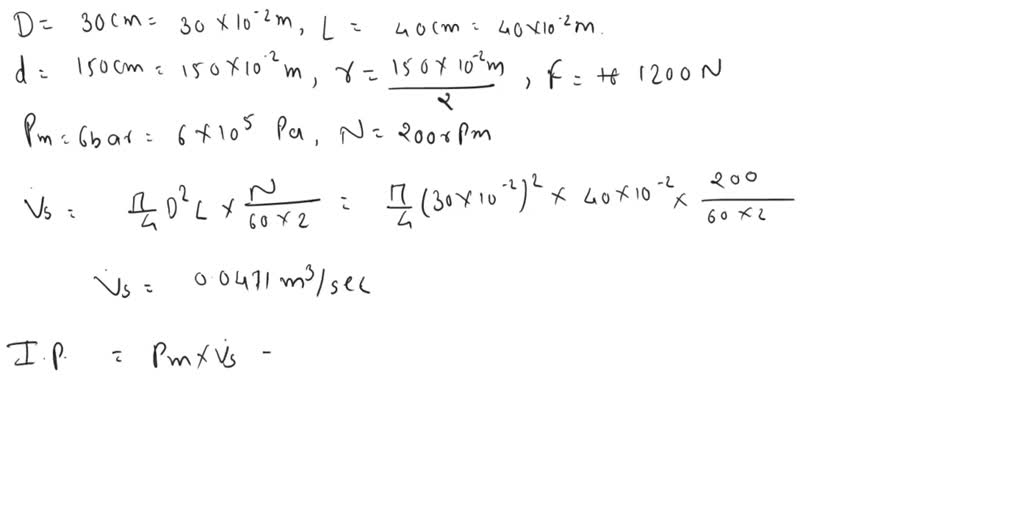 D = 30cm = 30 × 10⁻² m, L = 40cm = 40×10⁻² m.
d = 150cm = 150 × 10⁻² m, r = 150 × 10⁻² m / 2, F = 1200 N
Pm = 6bar = 6 × 10⁵ Pa, N = 200rpm
V̇s = π/4 D² L × N / 60 × 2 = π/4 (30 × 10⁻²)² × 40 × 10⁻² × 200 / 60 × 2
V̇s = 0.0471 m³/sec
I.P. = Pm × V̇s -